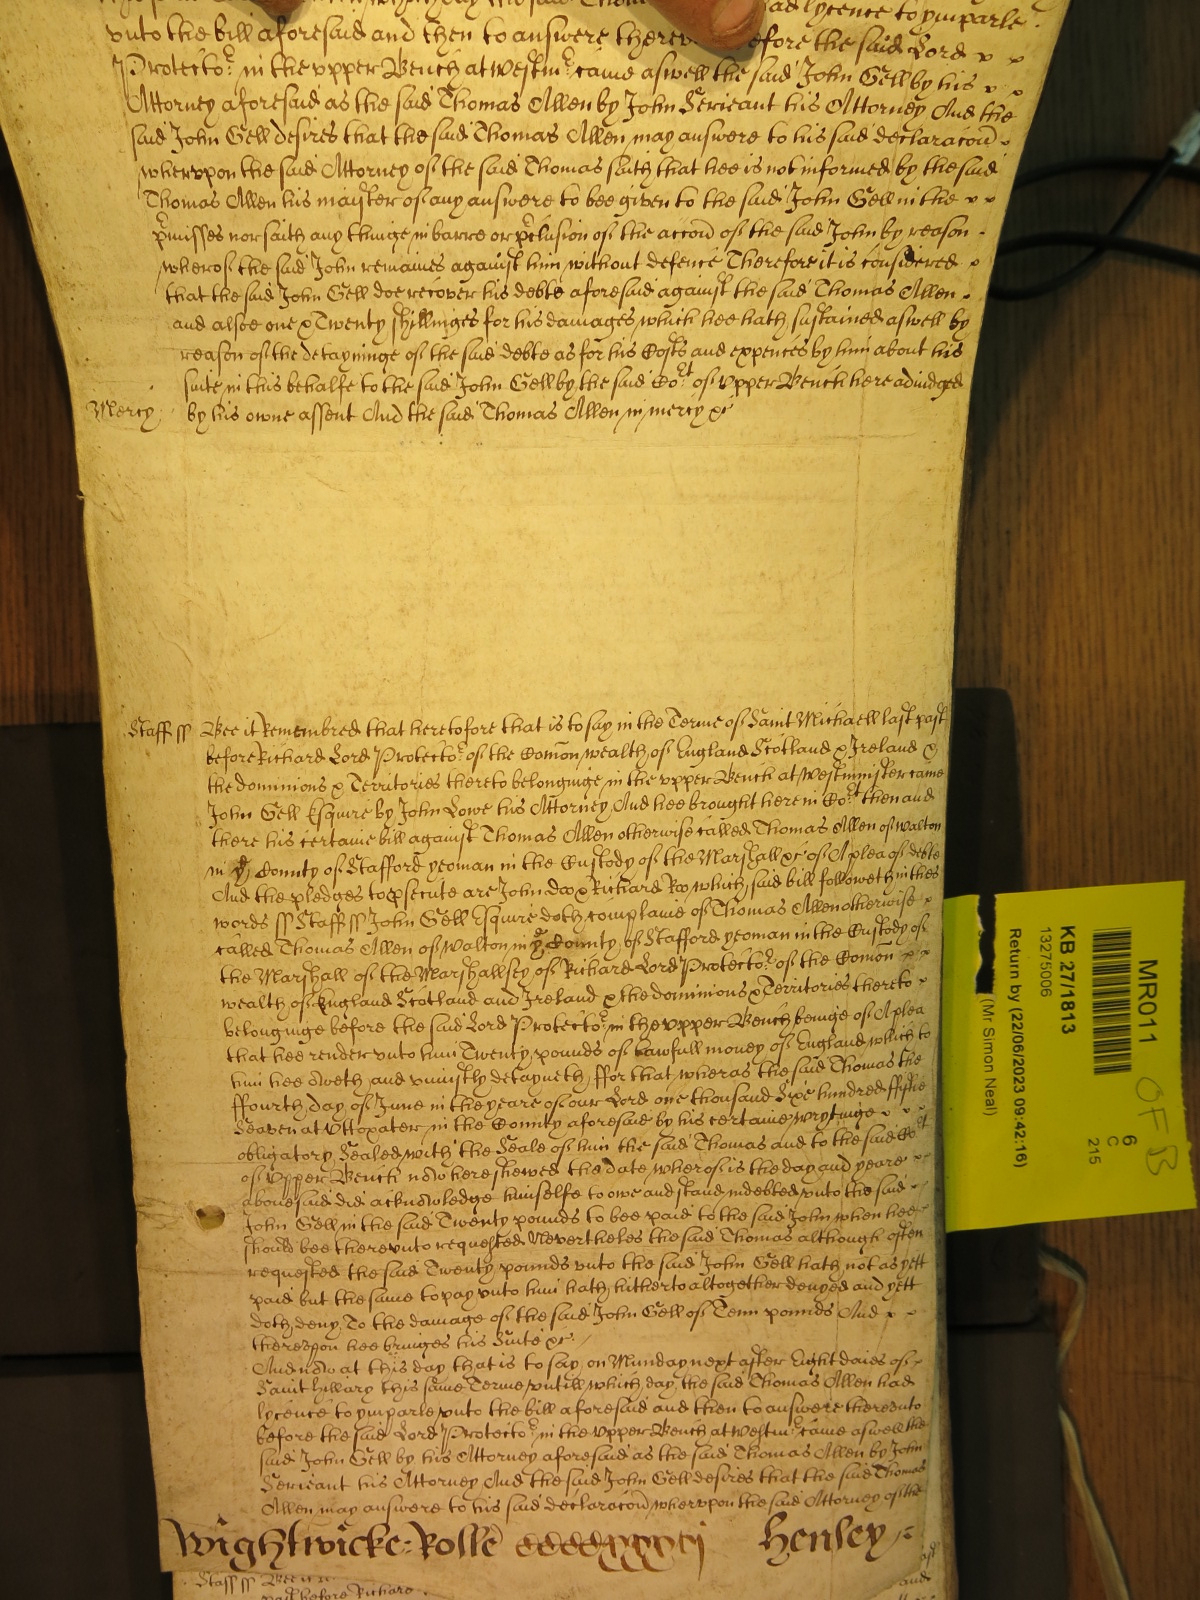 said Thomas had lycence to ymparle
vnto the bill aforesaid and then to answere before the said Lord x x
Protector in the vpper Bench at Westmr came aswell the said John Gell by his x x
Attorney aforesaid as the said Thomas Allen by John Serieant his Attorney And the
said John Gell desires that the said Thomas Allen may answere to his said declaracon
wherupon the said Attorney of the said Thomas saith that hee is not informed by the said
Thomas Allen his maister of any answere to bee given to the said John Gell in the x x
pmisses nor saith any thinge in barre or pclusion of the accon of the said John by reason
wherof the said John remaines against him without defence Therefore it is considered x
that the said John Gell doe recover his debte aforesaid against the said Thomas Allen
and alsoe one & Twenty shillinges for his damages which hee hath sustained aswell by
reason of the detayninge of the said debte as for his Costs and expences by him about his
suite in this behalfe to the said John Gell by the said Cort of vpper Bench here adiudged
Mercy by his owne assent And the said Thomas Allen in mercy &c
Staff ss Bee it Remembred that heretofore that is to say in the Terme of Saint Michaell last past
before Richard Lord Protector of the Comon wealth of England Scotland & Ireland &
the dominions & Territories thereto belonginge in the vpper Bench at Westminster came
John Gell Esquire by John Lowe his Attorney And hee brought here in Cort then and
there his certaine bill against Thomas Allen otherwise called Thomas Allen of Walton
in ye County of Stafford yeoman in the Custody of the Marshall &c of A plea of debte
And the pledges to psecute are John doo & Richard Roo which said bill followeth in theis
words ss Staff ss John Gell Esquire doth complaine of Thomas Allen otherwise x
called Thomas Allen of Walton in ye County of Stafford yeoman in the Custody of
the Marshall of the Marshallsey of Richard Lord Protector of the Comon x x
wealth of England Scotland and Ireland & the dominions & Territories thereto x
belonginge before the said Lord Protector in the vpper Bench beinge of A plea
that hee render vnto him Twenty pounds of lawfull money of England which to
him hee oweth and vniustly detayneth ffor that wheras the said Thomas the
ffourth day of June in the yeare of our Lord one thousand Sixe hundred ffiftie
Seaven at Vttoxater in the County aforesaid by his certaine wrytinge x x x
obligatory Sealed with the Seale of him the said Thomas and to the said Cort
of Vpper Bench now here shewed the date wherof is the day and yeare
abouesaid did acknowledge himselfe to owe and stand indebted vnto the said
John Gell in the said Twenty pounds to bee paid to the said John when hee
should bee therevnto requested Neverthelesse the said Thomas although often
requested the said Twenty pounds vnto the said John Gell hath not as yett
paid but the same to pay vnto him hath hitherto altogether denyed and yett
doth deny To the damage of the said John Gell of Tenn pounds And x x
therevpon hee bringes his Suite &c
And now at this day that is to say on Munday next after Eight daies of
Saint Hillary this same Terme vntill which day the said Thomas Allen had
lycence to ymparle vnto the bill aforesaid and then to answere therevnto
before the said Lord Protector in the vpper Bench at Westmr came aswell the
said John Gell by his Attorney aforesaid as the said Thomas Allen by John
Serieant his Attorney And the said John Gell desires that the said Thomas
Allen may answere to his said declaracon wherupon the said Attorney of the
Wightwicke: Rolle ccccxxxxj Henley
Staff ss Bee it
past before Richard
MR011
KB 27/1813
13275006
6
C
215
OFB
(Mr Simon Neal)
Return by (22/06/2023 09:42:16)